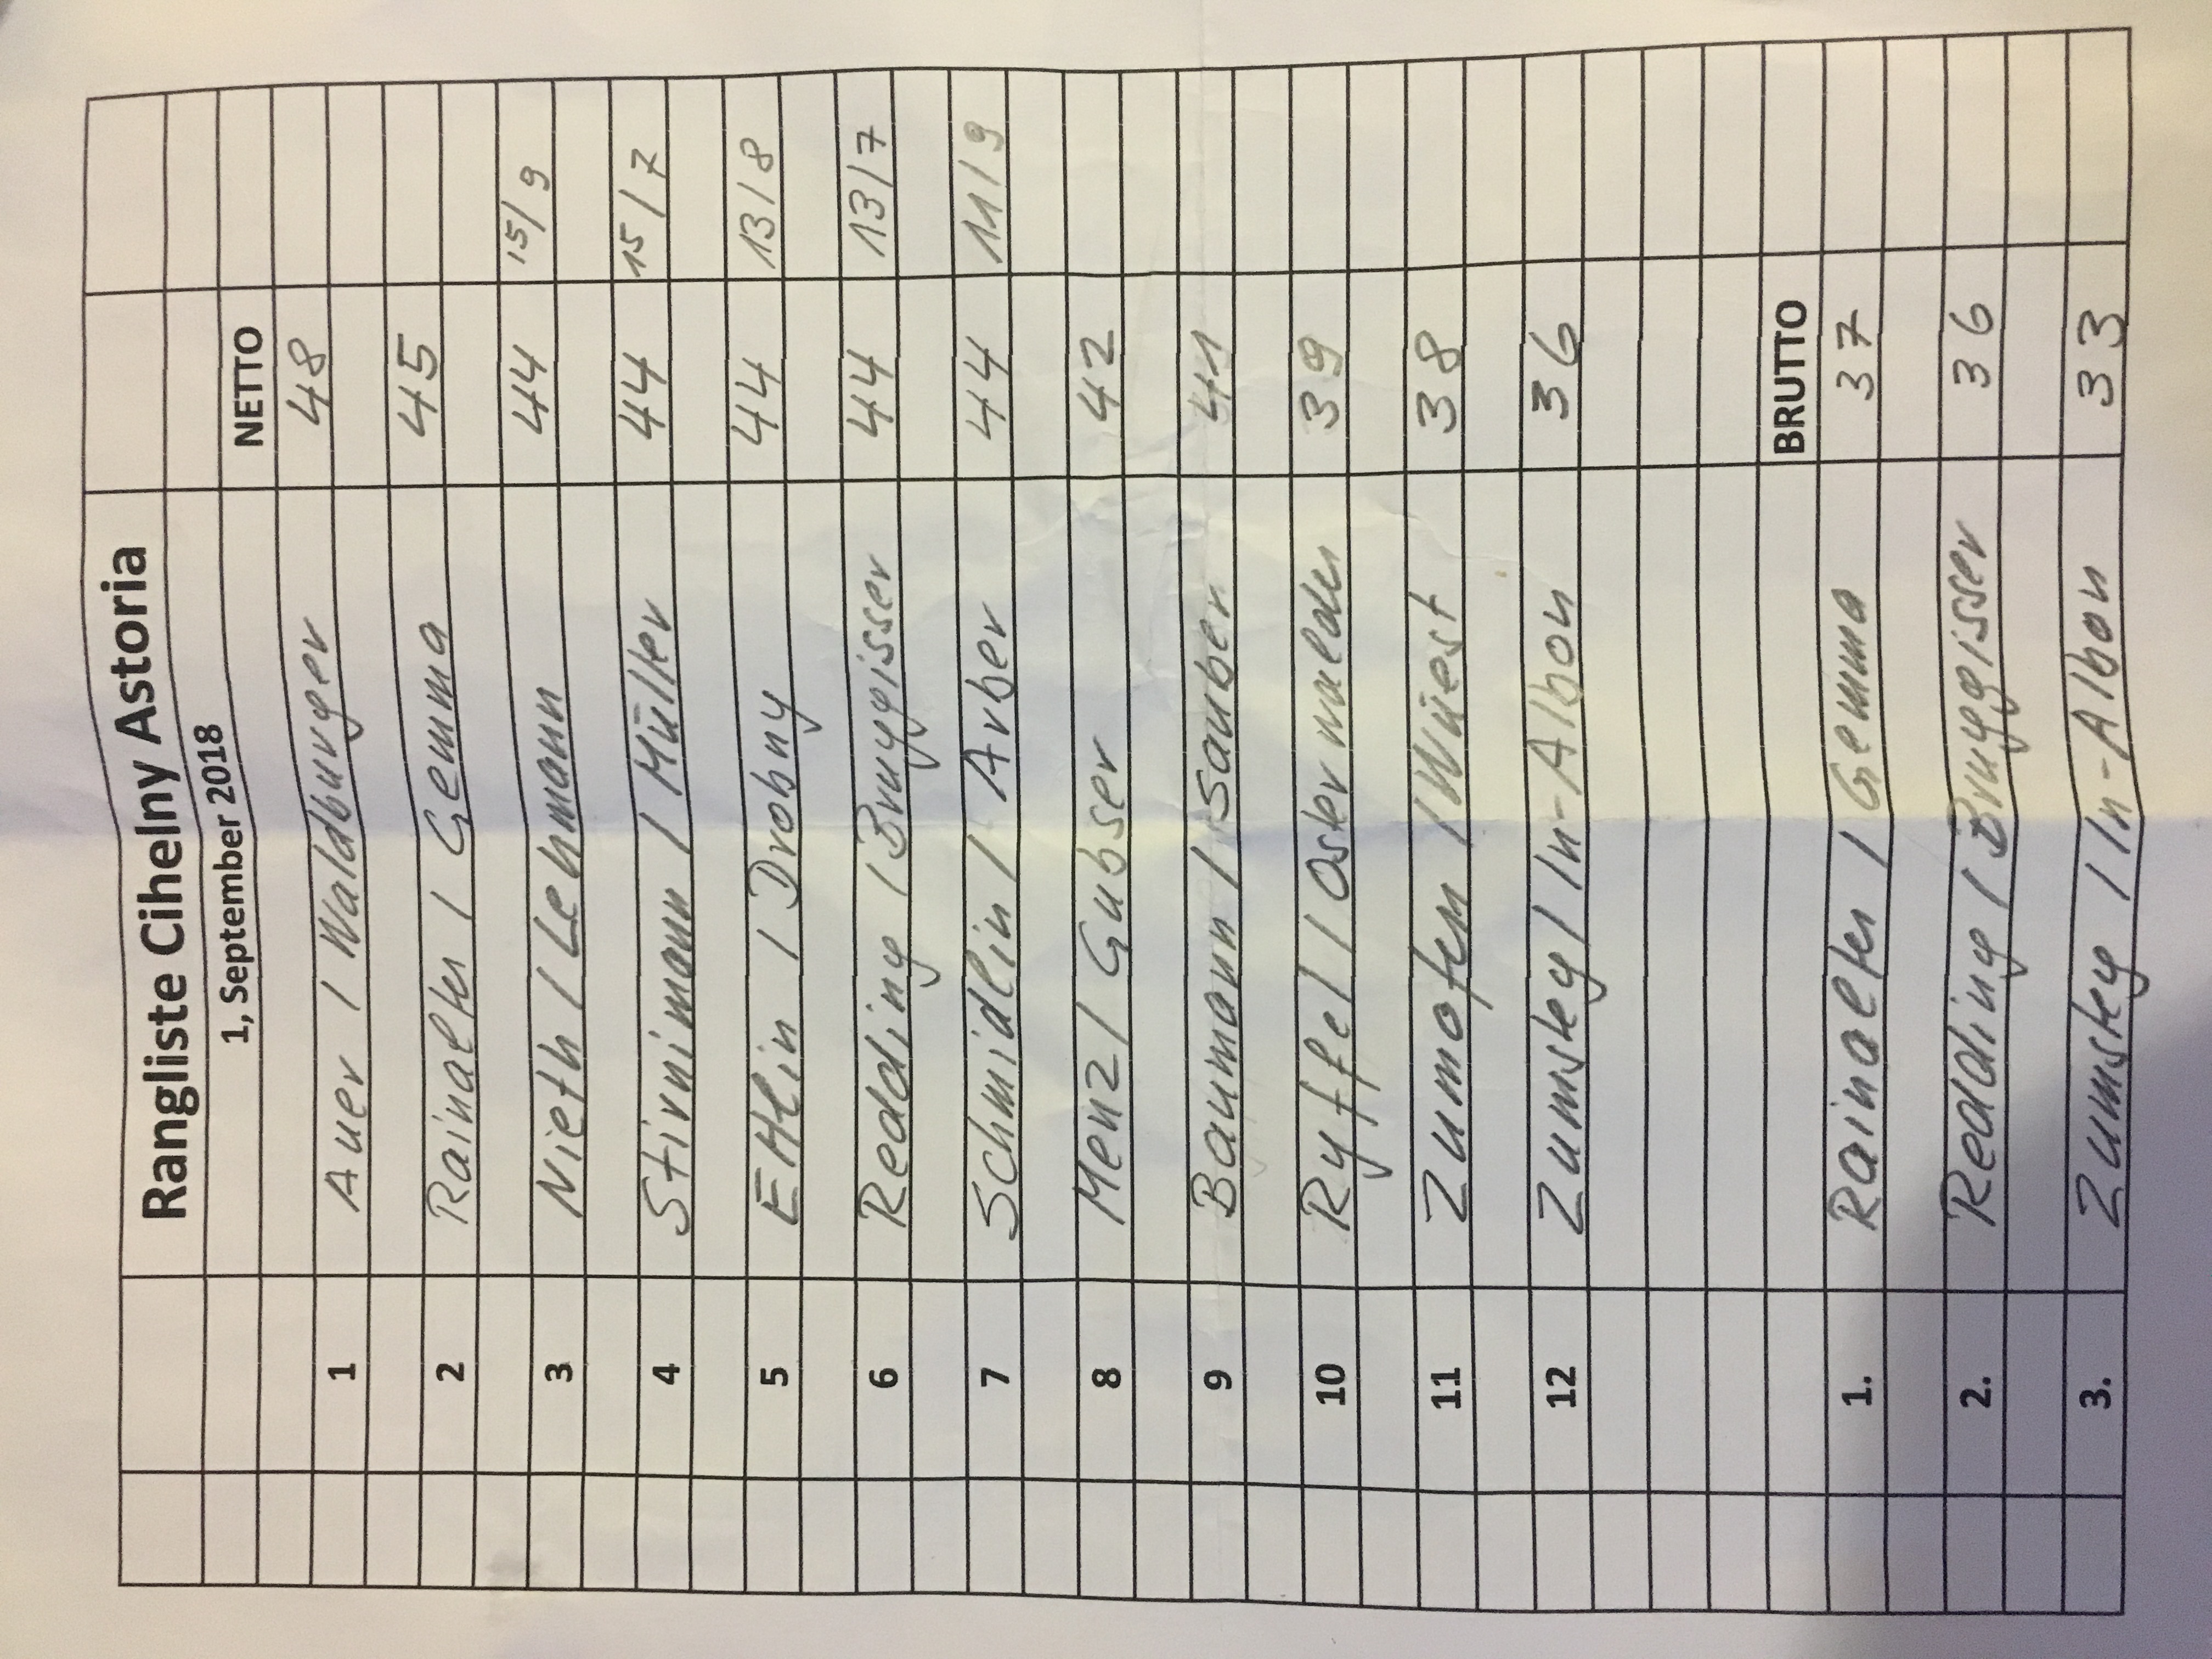 Rangliste Cihelny Astoria
1, September 2018
NETTO
1 Auer / Waldburger 48
2 Rainalter / Gemma 45
3 Nieth / Lehmann 44 15/9
4 Stirnimann / Müller 44 15/7
5 Ettlin / Drobny 44 13/8
6 Redding / Bruggisser 44 13/7
7 Schmidlin / Arber 44 11/9
8 Menz / Gubser 42
9 Baumann / Sauber 41
10 Ryffel / Osterwalder 39
11 Zumofen / Wüest 38
12 Zumsteg / In-Albon 36
BRUTTO
1. Rainalter / Gemma 37
2. Redding / Bruggisser 36
3. Zumsteg / In-Albon 33